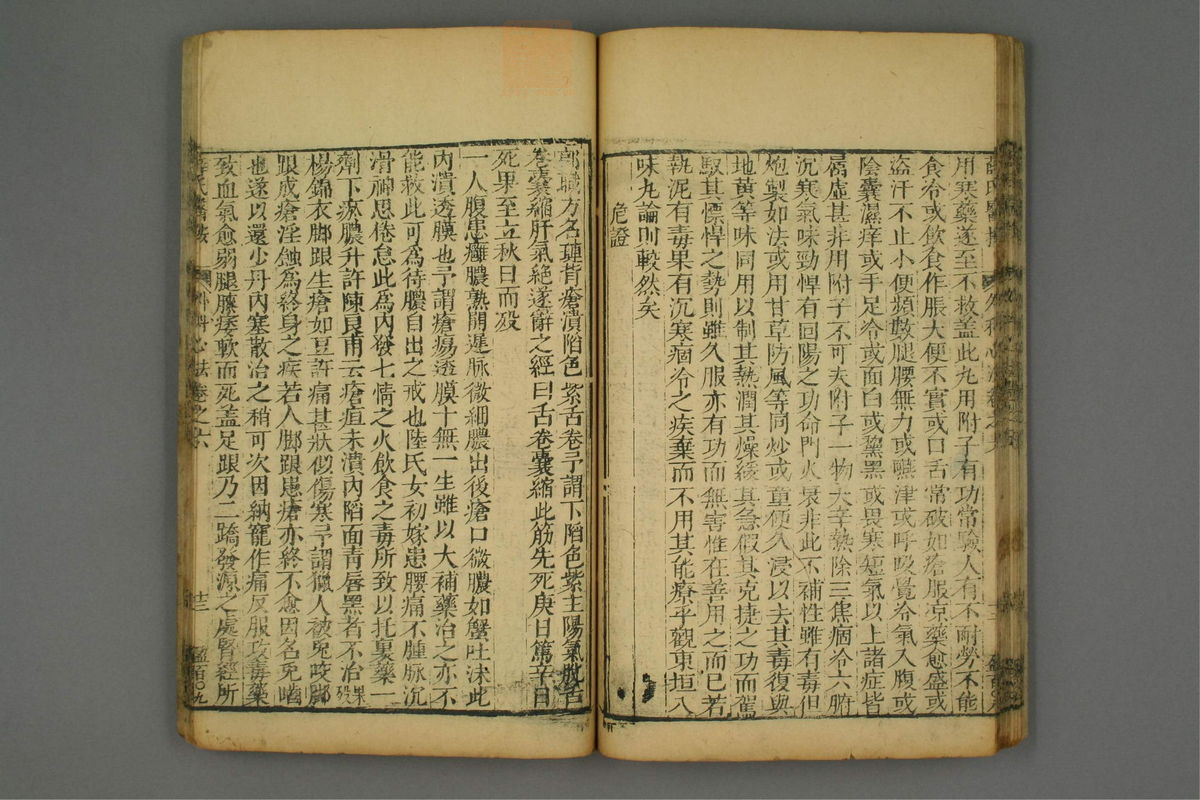 用寒藥遂至不救盖此丸用附子有功常驗人有不耐勞不能
食冷或飲食作脹大便不實或口舌常破如瘡服凉藥愈盛或
盜汗不止小便頻數腿腰無力或嚥津或呼吸覺冷氣入腹或
陰囊濕痒或手足冷或面白或黧黑或畏寒短氣以上諸症皆
屬虛甚非用附子不可夫附子一物大辛熱除三焦痼冷六腑
沉寒氣味勁悍有回陽之功命門火衰非此不補性雖有毒但
炮製如法或用甘草防風等同炒或童便久浸以去其毒復與
地黃等味同用以制其熱潤其燥緩其急假其克捷之功而駕
馭其慓悍之勢則雖久服亦有功而無害惟在善用之而已若
執泥有毒果有沉寒痼冷之疾棄而不用其能療乎觀東垣八
味丸論則較然矣
危證
郭職方名璉背瘡潰陷色紫舌卷予謂下陷色紫主陽氣脫舌
卷囊縮肝氣絶遂辭之經曰舌卷囊縮此筋先死庚日篤辛日
死果至立秋日而歿
一人腹患癰膿熟開遲脉微細膿出後瘡口微膿如蟹吐沫此
內潰透膜也予謂瘡瘍透膜十無一生雖以大補藥治之亦不
能救此可爲待膿自出之戒也陸氏女初嫁患腰痛不腫脉沉
滑神思倦怠此為內發七情之火飲食之毒所致以托裏藥一
劑下瘀膿升許陳良甫云瘡疽未潰內陷面靑唇黑者不治果歿
楊錦衣脚跟生瘡如豆許痛甚狀似傷寒予謂獵人被兎咬脚
跟成瘡淫蝕為終身之疾若人脚跟患瘡亦終不愈因名兎嚙
也遂以還少丹內塞散治之稍可次因納寵作痛反服攻毒藥
致血氣愈弱腿膝痿軟而死盖足跟乃二蹻發源之處腎經所
薛氏醫按 外科心法卷之六 十三